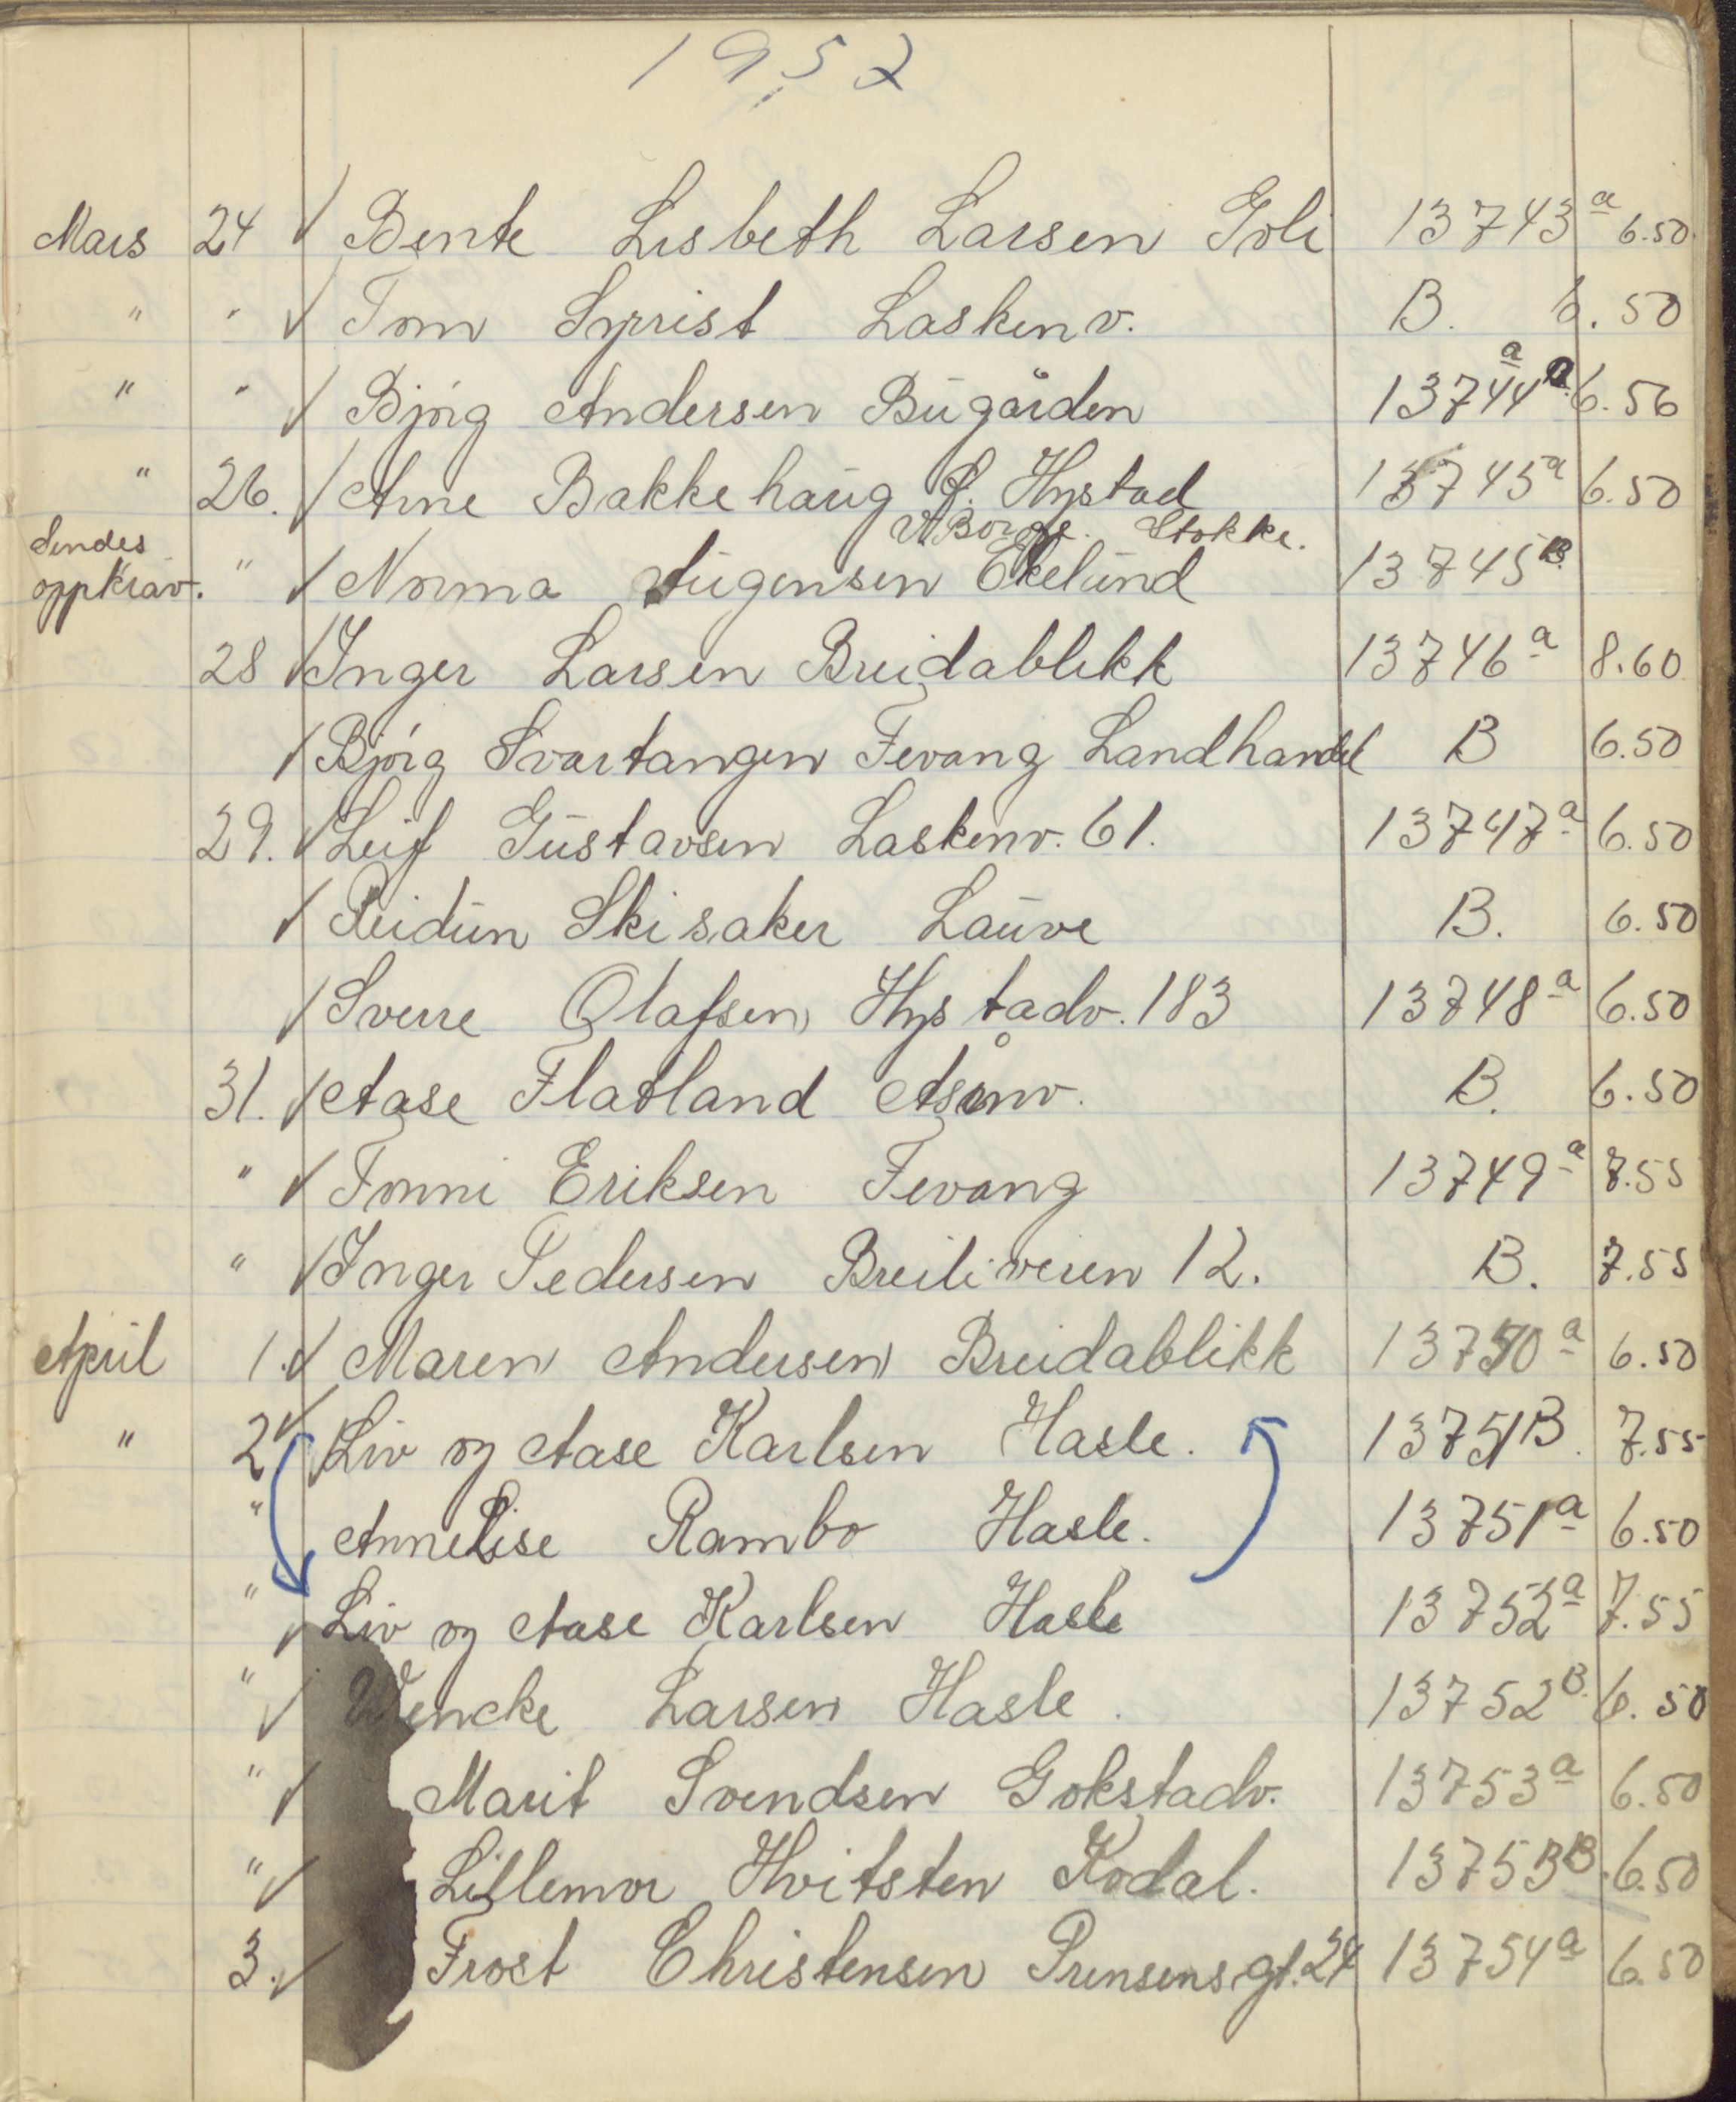 1952
Mars 24 Bente Lisbeth Larsen Goli 13743a 6.50
" " Tom Syrrist Laskenv. B. 6.50
" " Bjørg Andersen Bugården 13744a 6.50
" 26. Arne Bakkehaug Hystad 13745a 6.50
Stokke.
Sendes
oppkrav. " Norma Ekelund 13745B.
28 Inger Larsen Breidablikk 13746a 8.60
Bjørg Svartangen Fevang Landhandel B 6.50
29. Leif Gustavsen Laskenv. 61. 13747a 6.50
Reidun Skisaker Lauve B. 6.50
Sverre Olafsen Hystadv. 183 13748a 6.50
31. Aase Flatland B. 6.50
" Tonni Eriksen Fevang 13749a 7.55
" Inger Pedersen Breiliveien 12. B. 7.55
April 1. Maren Andersen Breidablikk 13750a 6.50
" 2 Liv og Aase Karlsen Hasle. 13751B. 7.55
" AnneLise Rambo Hasle. 13751a 6.50
" Liv og Aase Karlsen Hasle 13752a 7.55
" Wencke Larsen Hasle. 13752B. 6.50
" Marit Svendsen Gokstadv. 13753a 6.50
" Lillemor Hvitsten Kodal. 13753B. 6.50
3. Frost Christensen Prinsensgt. 24 13754a 6.50